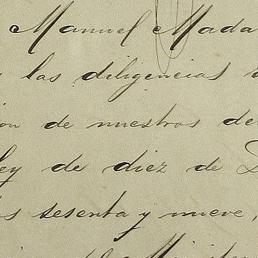 Manuel Mada
las diligencias
on de nuestros de
ley de diez de
s sesenta y nueve,